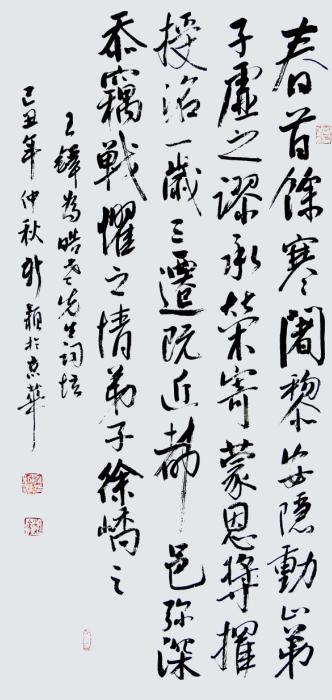 春首餘寒闍黎安隱動止弟
子虛乏謬承榮寄蒙恩獎擢
授洺一歲三遷既近都邑弥深
忝竊戰懼之情弟子徐嶠之
王鐸為皓老先生詞壇
己丑年仲秋於京華